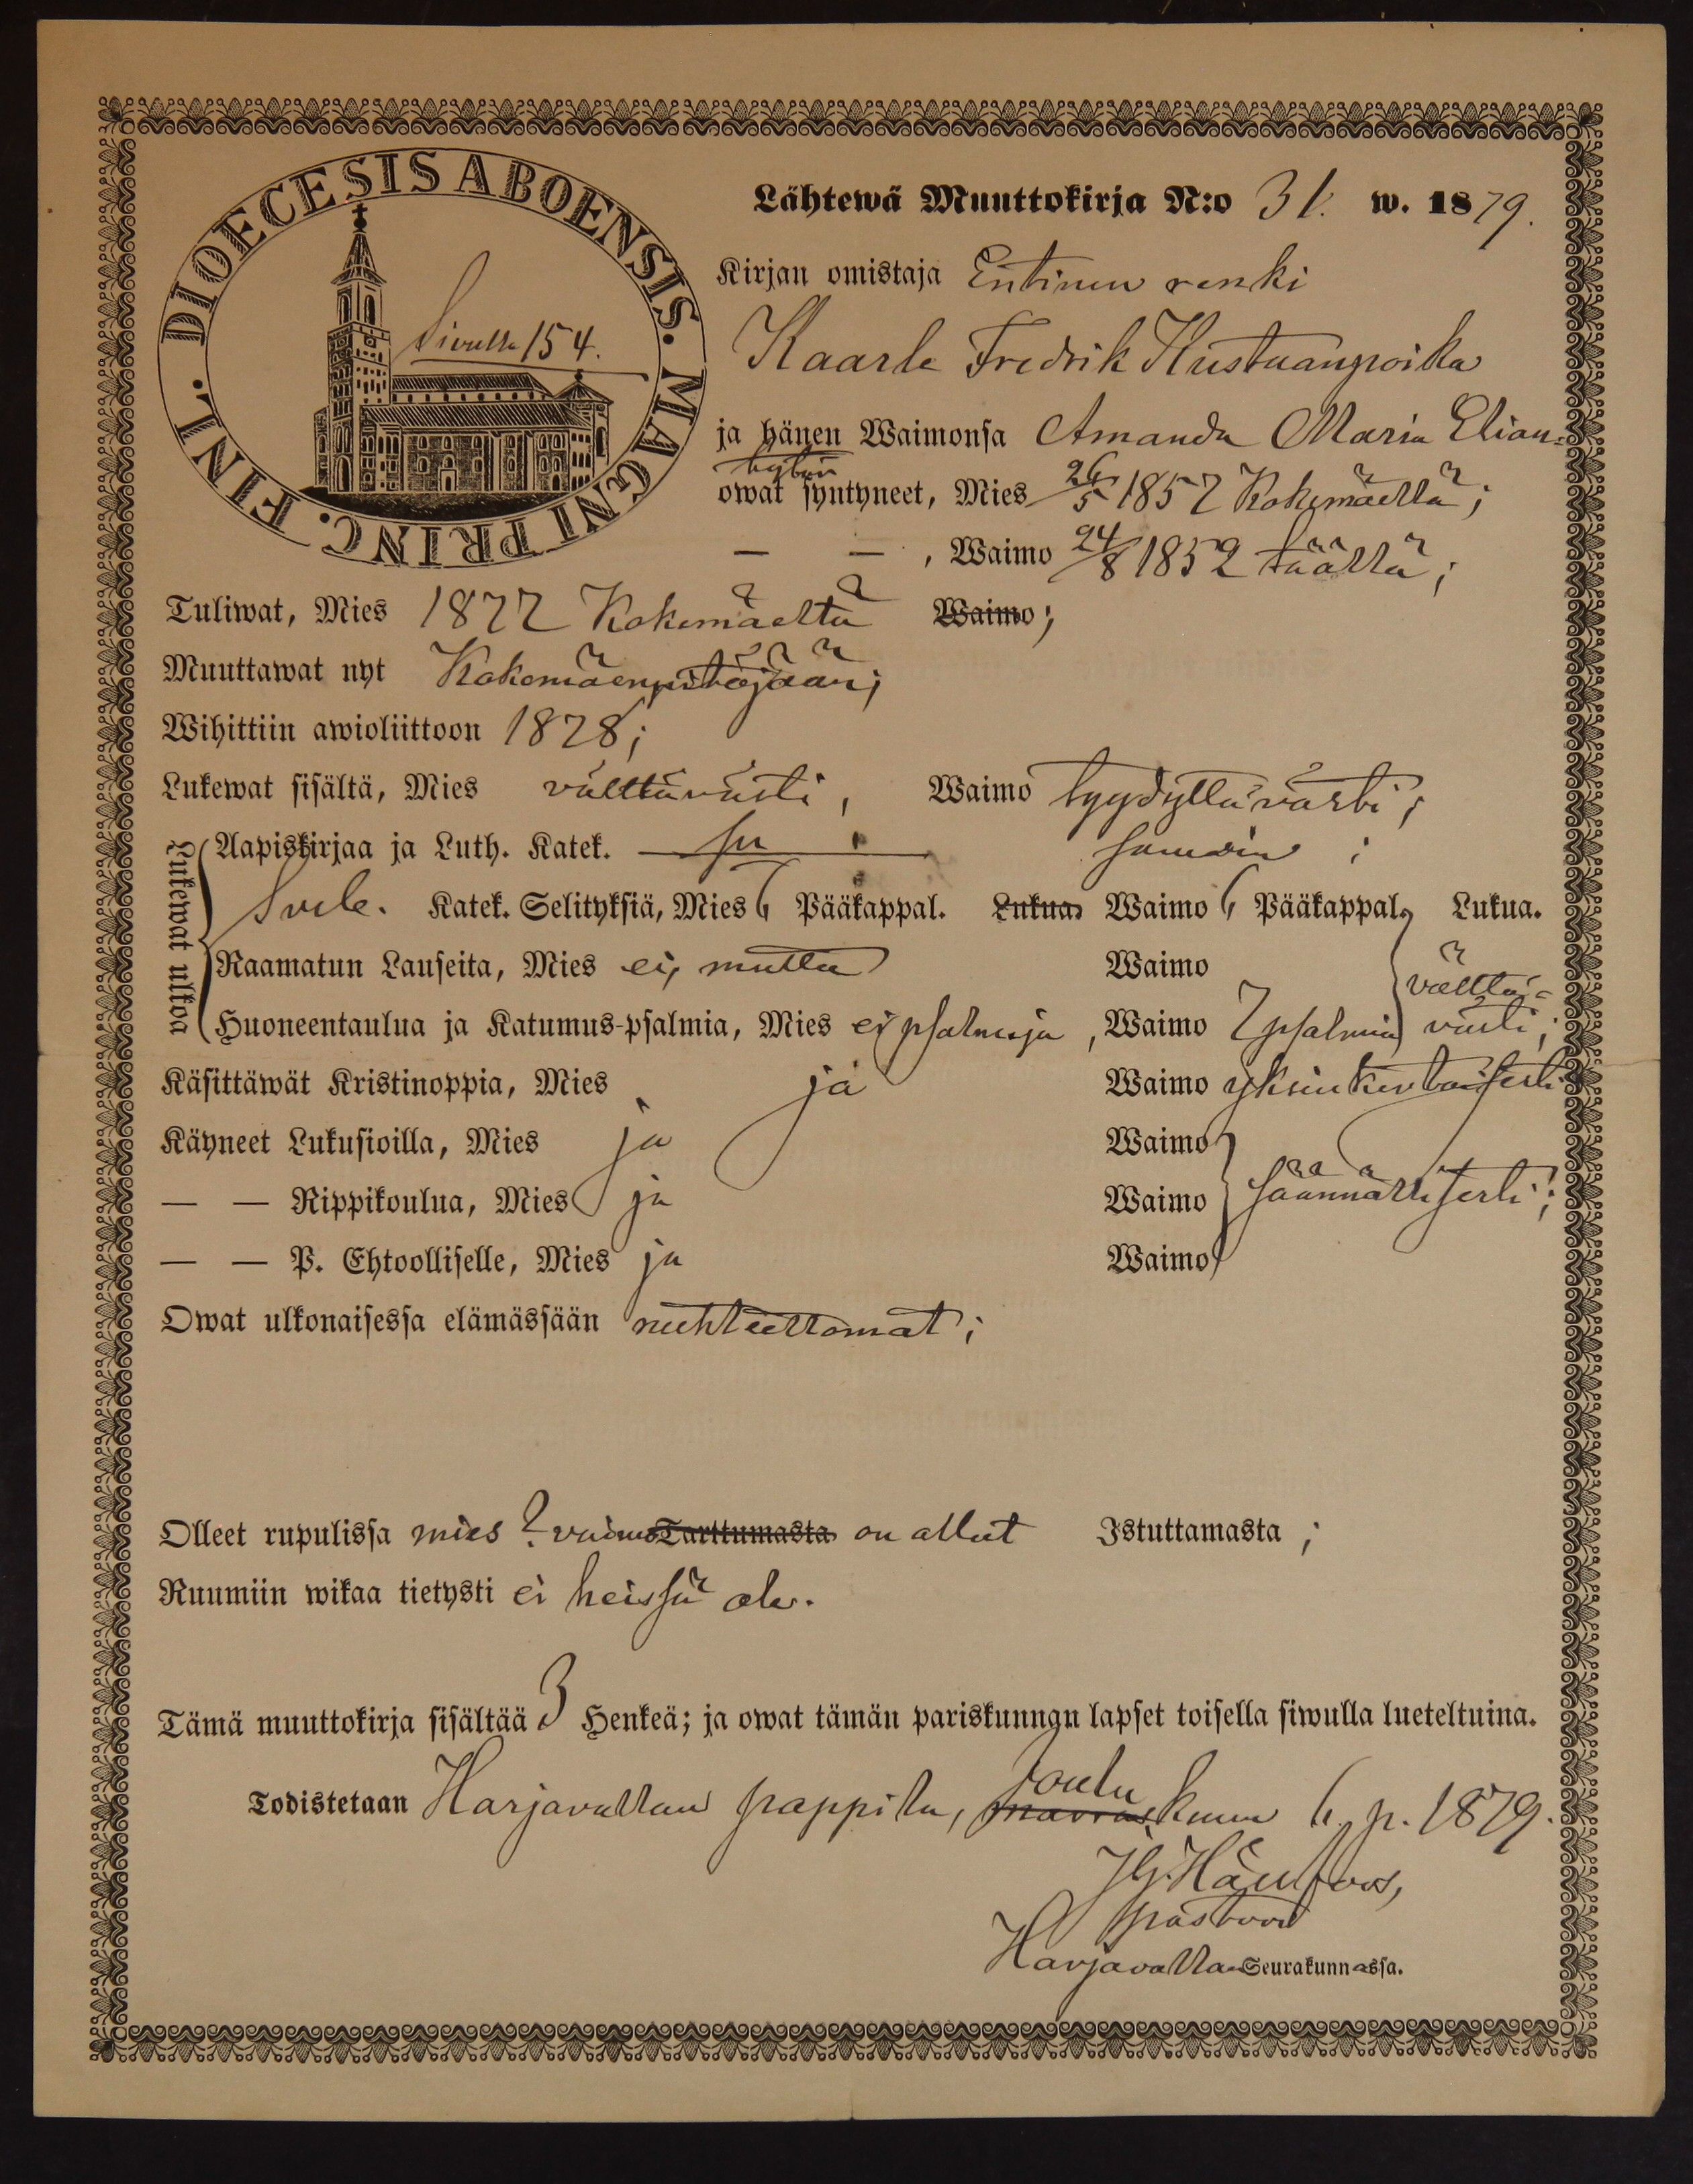 DIOECESIS ABOENSIS. MAGNI PRINC. FINL.
Sivulla 154.
Lähtewä Muuttokirja N:o 31. w. 1879.
Kirjan omistaja Entinen renki
Kaarle Fredrik Kustaanpoika
ja hänen Waimonsa Amanda Maria Elian-
tytär
owat syntyneet, Mies 26/5 1857 Kokemäellä;
— — , Waimo 24/8 1852 täällä;
Tuliwat, Mies 1877 Kokemäeltä Waimo;
Muuttawat nyt Kokemäenpitäjään;
Wihittiin awioliittoon 1878;
Lukewat sisältä, Mies välttävästi, Waimo tyydyttävästi;
Lukewat ulkoa
Aapiskirjaa ja Luth. Katek. samoin;
Sveb. Katek. Selityksiä, Mies 6 Pääkappal. Lukua. Waimo 6 Pääkappal. Lukua.
Raamatun Lauseita, Mies ei, mutta Waimo
välttä-
Huoneentaulua ja Katumus-psalmia, Mies ei psalmeja, Waimo 7 psalmia västi;
Käsittäwät Kristinoppia, Mies ja Waimo yksinkertaisesti
Käyneet Lukusioilla, Mies ja Waimo
— — Rippikoulua, Mies ja Waimo säännöllisesti;
— — P. Ehtoolliselle, Mies ja Waimo
Owat ulkonaisessa elämässään nuhteettomat;
Olleet rupulissa mies ? vaimo Tarttumasta on ollut Istuttamasta;
Ruumiin wikaa tietysti ei heissä ole.
Tämä muuttokirja sisältää 3 Henkeä; ja owat tämän pariskunngn lapset toisella siwulla lueteltuina.
Todistetaan Harjavallan pappila, marras joulu kuun 6 p. 1879.
pastori
Harjavallan Seurakunnassa.